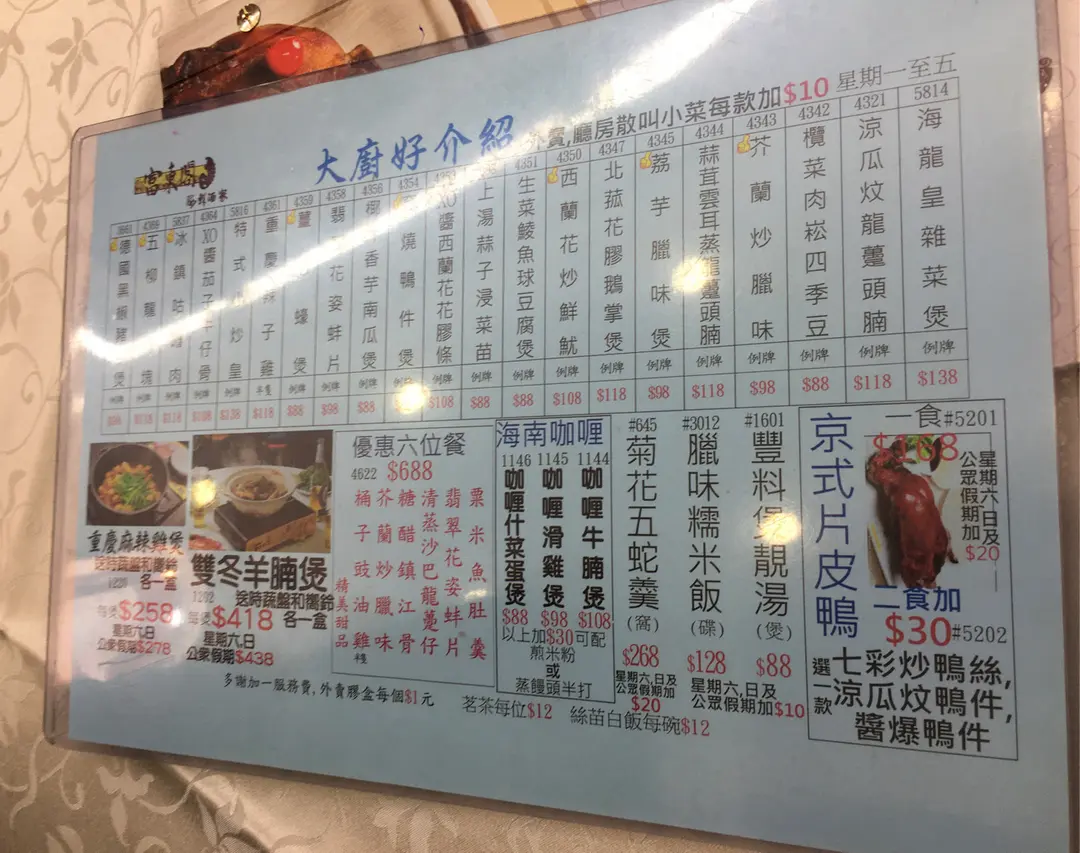 富東閣
海鮮酒家
大廚好介紹
外賣,廳房散叫小菜每款加$10 星期一至五
5814 海龍皇雜菜煲 例牌 $138
4321 涼瓜炆龍躉頭腩 例牌 $118
4342 欖菜肉崧四季豆 例牌 $88
4343 芥蘭炒臘味 例牌 $98
4344 蒜茸雲耳蒸龍躉頭腩 例牌 $118
4345 荔芋臘味煲 例牌 $98
4347 北菰花膠鵝掌煲 例牌 $118
4350 西蘭花炒鮮魷 例牌 $108
4351 生菜鯪魚球豆腐煲 例牌 $88
上湯蒜子浸菜苗 例牌 $88
XO醬西蘭花花膠條 例牌 $108
4354 燒鴨件煲 例牌
4356 椰香芋南瓜煲 例牌 $88
4358 翡花姿蚌片 例牌 $98
4359 薑蠔煲 例牌 $88
4361 重慶辣子雞 半隻 $118
5816 特式炒皇 例牌 $138
4364 XO醬茄子仔骨 例牌 $108
5837 冰鎮咕嚕肉 例牌 $118
4366 五柳龍塊 例牌
德國黑椒豬煲 例牌
重慶麻辣雞煲
送時蔬盤和響鈴
1220 各一盒
每煲$258
星期六日
公眾假期$278
雙冬羊腩煲
1202 送時蔬盤和響鈴
每煲$418 各一盒
星期六,日
公眾假期$438
優惠六位餐
4622 $688
粟米魚肚羹
翡翠花姿蚌片
清蒸沙巴龍躉仔
糖醋鎮江骨
芥蘭炒臘味
桶子豉油雞
精美甜品
海南咖喱
1144 咖喱牛腩煲 $108
1145 咖喱滑雞煲 $98
1146 咖喱什菜蛋煲 $88
以上加$30可配
煎米粉
或
蒸饅頭半打
#645 菊花五蛇羹(窩) $268
星期六,日及
公眾假期加
$20
#3012 臘味糯米飯(碟) $128
#1601 豐料煲靚湯(煲) $88
星期六,日及
公眾假期加$10
京式片皮鴨
一食#5201
$168
星期六,日及公眾假期加$20
二食加
$30#5202
選一款
七彩炒鴨絲,
涼瓜炆鴨件,
醬爆鴨件
多謝加一服務費,外賣膠盒每個$1元
茗茶每位$12 絲苗白飯每碗$12